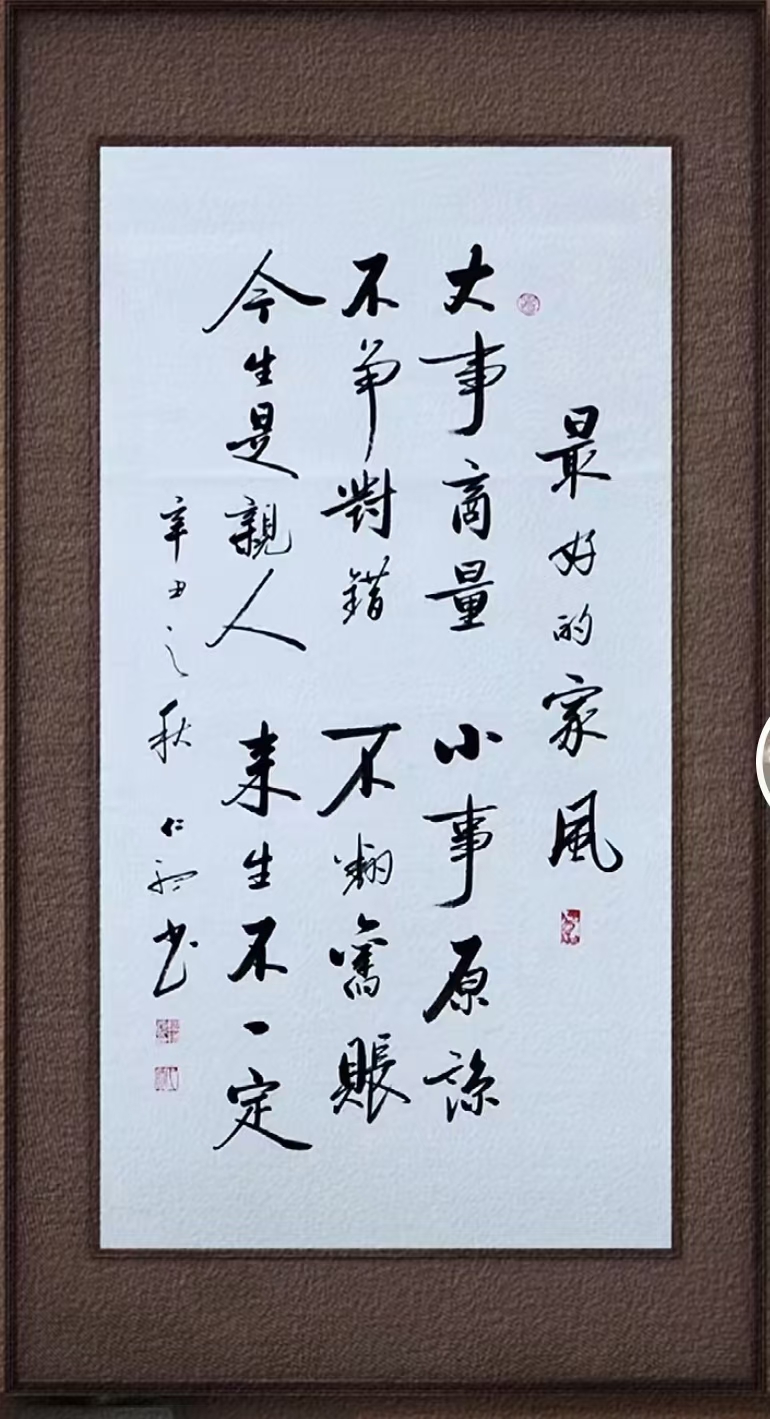 最好的家風
大事商量 小事原諒
不爭對錯 不翻舊賬
今生是親人 来生不一定
辛丑之秋 仁 書